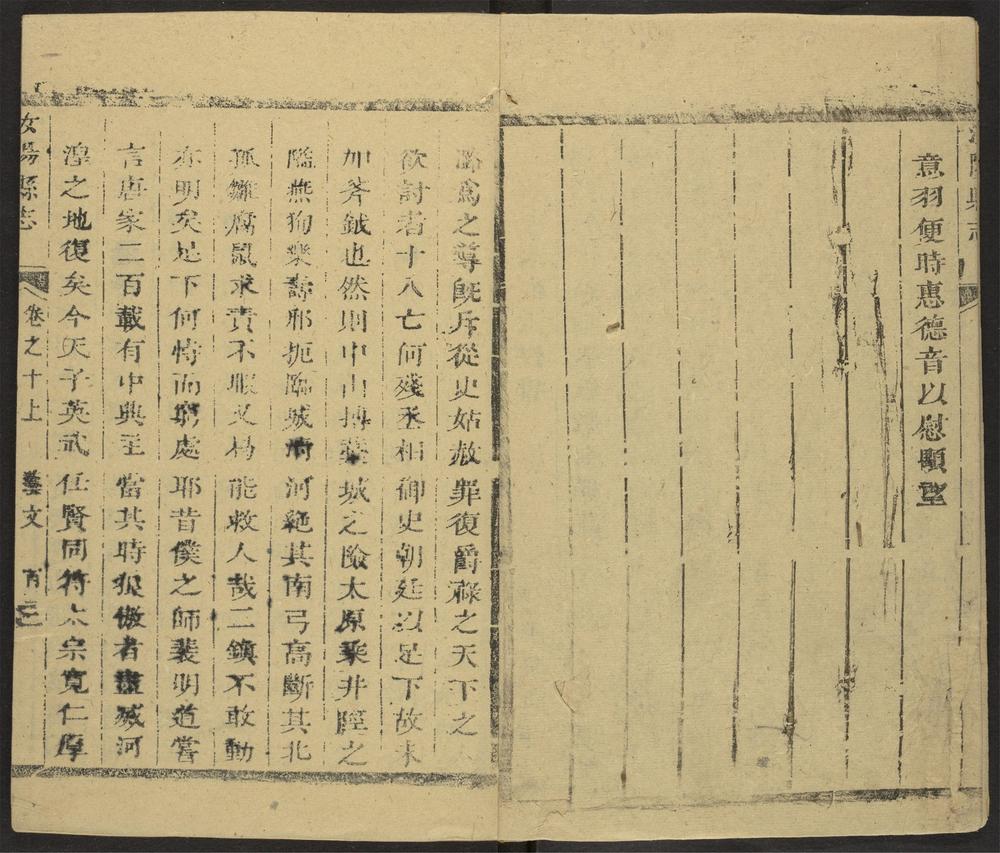 意羽便時惠德音以慰顒望
為之尊既斥從史姑赦罪復爵祿之天下之
欲討者十八亡何殘丞相御史朝廷以足下故未
加斧鉞也然則中山搏藁城之險太原乘井陘之
隘燕狥樂壽邢扼臨城清河絕其南弓高斷其北
孤雛腐鼠求責不暇又曷能救人哉二鎮不敢動
亦明矣足下何恃而窮處耶昔僕之師裴明道嘗
言唐家二百載有中興主當其時狠傲者盡滅河
湟之地復矣今天子英武任賢同符太宗寬仁厚
汝陽縣志 卷之十上 藝文